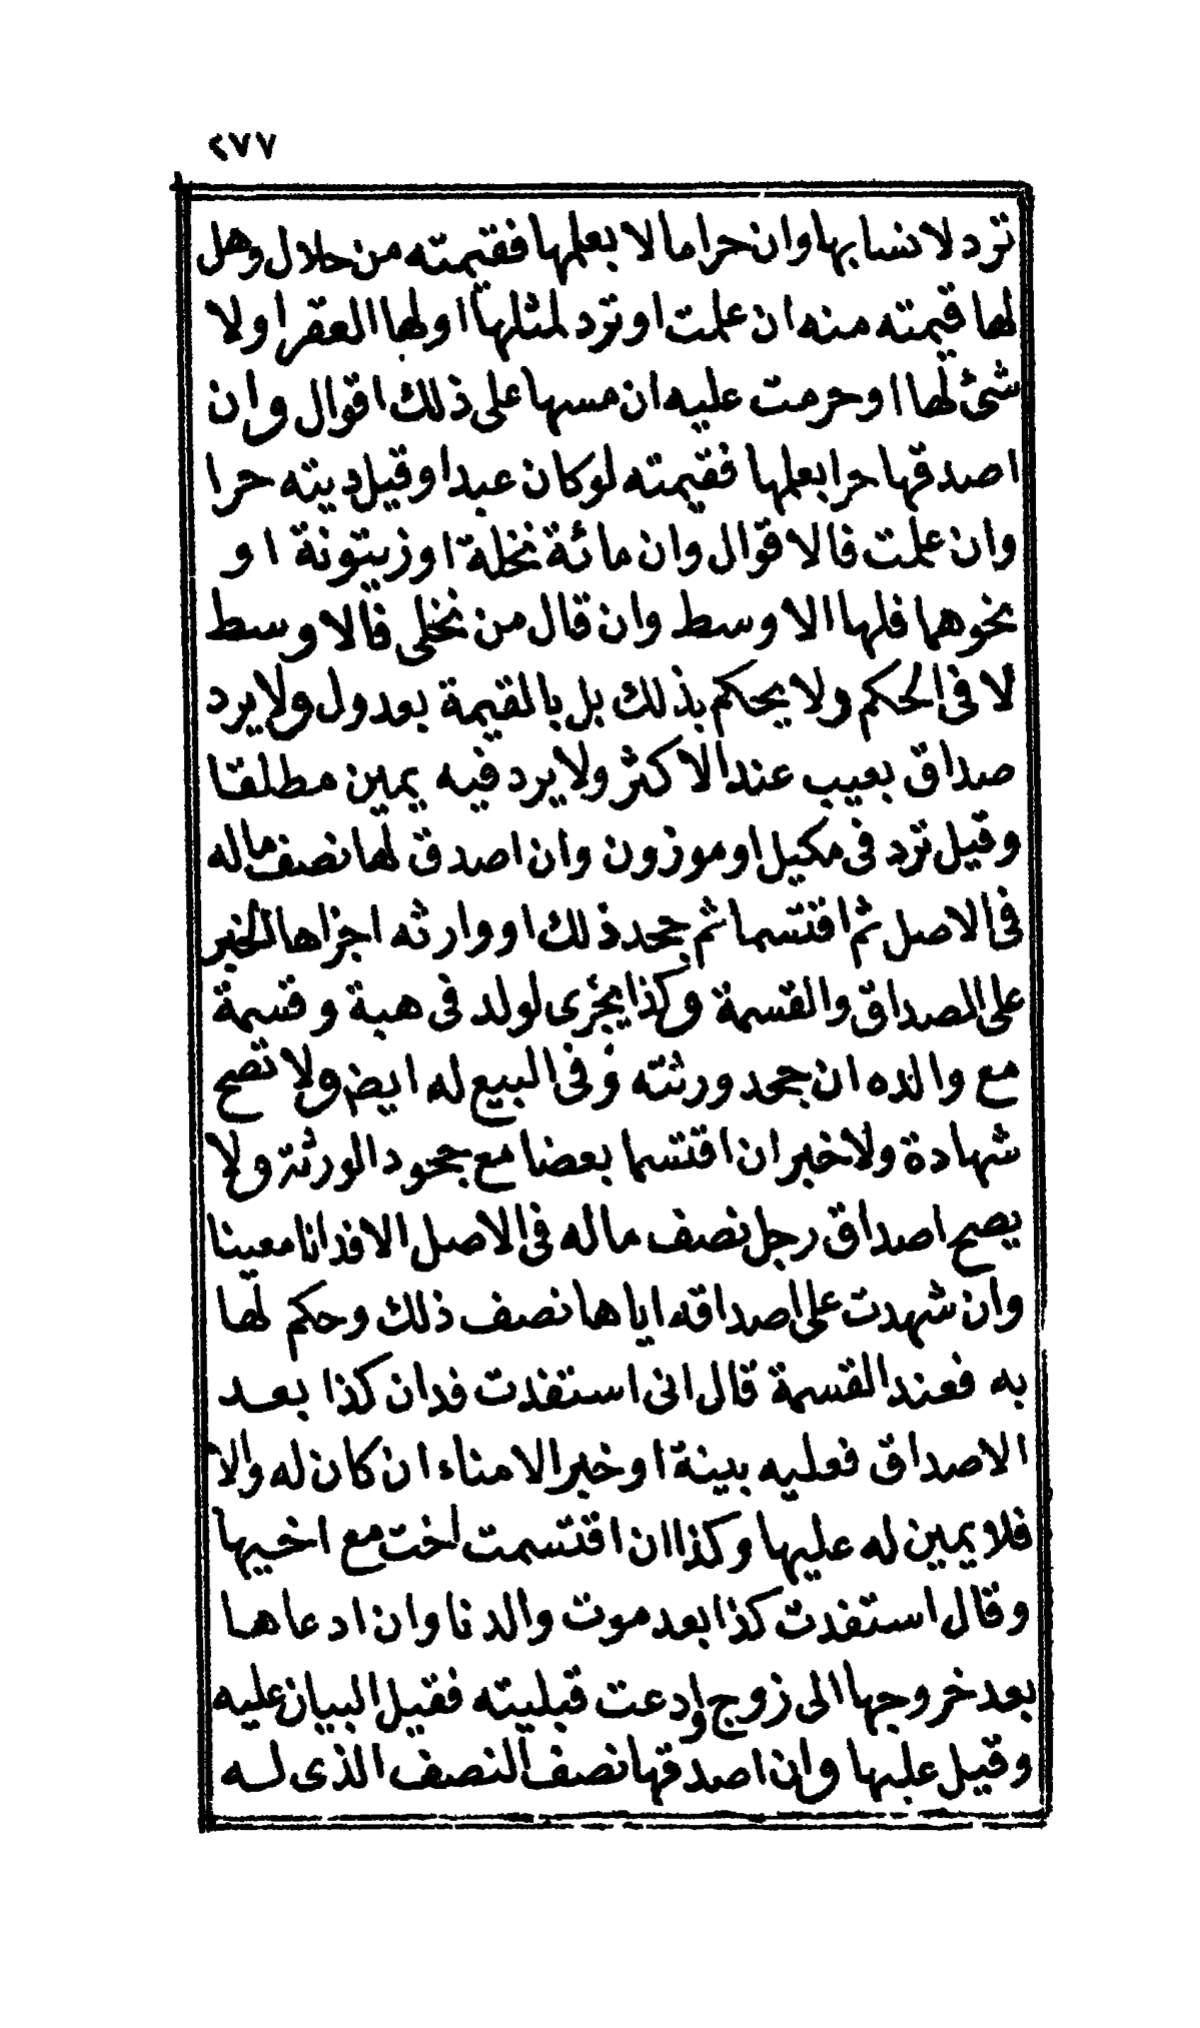 ٢٧٧
ترد لانسابها وان حراما لا بعلمها فقيمته من حلال وهل
لها قيمته منه ان علمت او ترد لمثلها او لها العقر او لا
شئ لها او حرمت عليه ان مسها على ذلك اقوال وان
اصدقها حرا بعلمها فقيمته لو كان عبدا وقيل ديته حرا
وان علمت فالاقوال وان مائة نخلة او زيتونة او
نحوهما فلها الاوسط وان قال من نخلى فالاوسط
لا فى الحكم ولا يحكم بذلك بل بالقيمة بعدول ولا يرد
صداق بعيب عند الاكثر ولا يرد فيه يمين مطلقا
وقيل ترد فى مكيل او موزون وان اصدق لها نصف ماله
فى الاصل ثم اقتسما ثم جحد ذلك او وارثه اجزاها الخبر
على الصداق والقسمة وكذا يجزى لولد فى هبة وقسمة
مع والده ان جحد ورثته وفى البيع له ايض ولا تصح
شهادة ولا خبر ان اقتسما بعضا مع جحود الورثة ولا
يصح اصداق رجل نصف ماله فى الاصل الا فدانا معينا
وان شهدت على اصداقه اياها نصف ذلك وحكم لها
به فعند القسمة قال انى استفدت فدان كذا بعد
الاصداق فعليه بينة او خبر الامناء ان كان له والا
فلا يمين له عليها وكذا ان اقتسمت اخت مع اخيها
وقال استفدت كذا بعد موت والدنا وان ادعاها
بعد خروجها الى زوج وادعت قبليته فقيل البيان عليه
وقيل عليها وان اصدقها نصف النصف الذى له